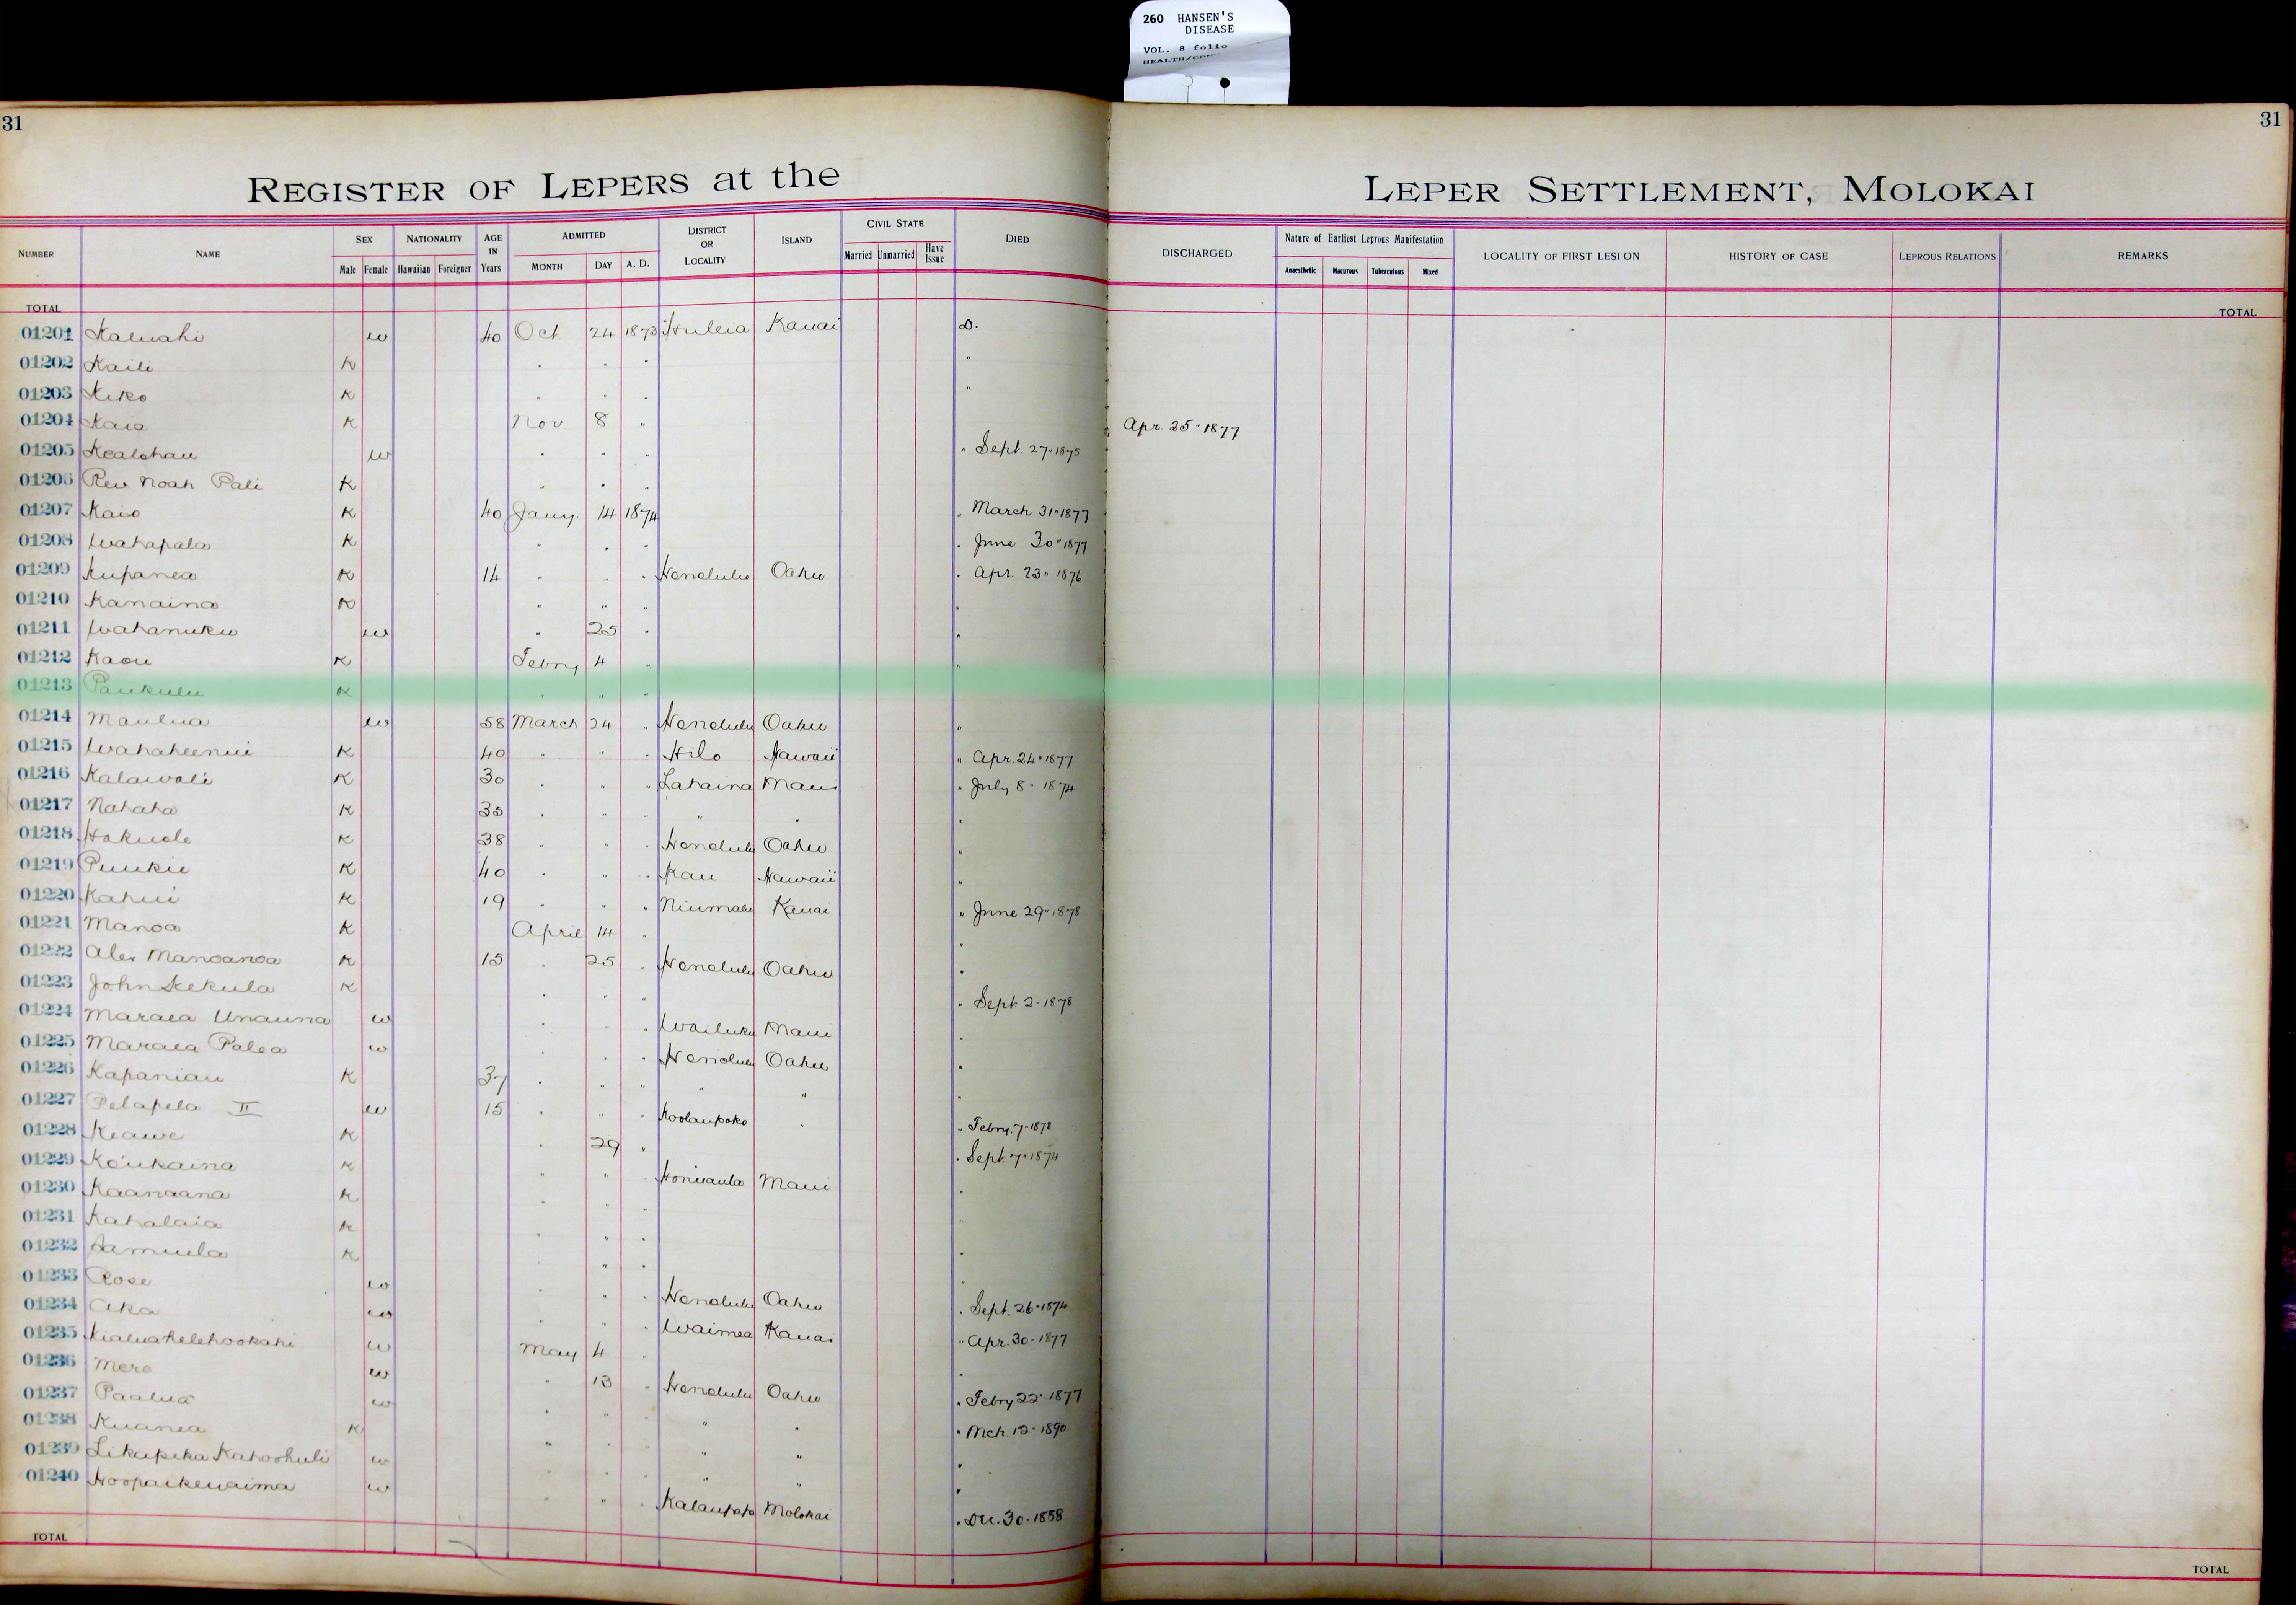 260 HANSEN'S
DISEASE
VOL. 8 folio
31
31
REGISTER OF LEPERS at the
LEPER SETTLEMENT, MOLOKAI
NUMBER NAME SEX Male Female NATIONALITY Hawaiian Foreigner AGE IN Years ADMITTED MONTH DAY A. D. DISTRICT OR LOCALITY ISLAND CIVIL STATE Married Unmarried Have Issue DIED DISCHARGED Nature of Earliest Leprous Manifestation Anaesthetic Macurous Tuberculous Mixed LOCALITY OF FIRST LESION HISTORY OF CASE LEPROUS RELATIONS REMARKS
TOTAL TOTAL
01201 Kaluahi w 40 Oct 24 1873 Huleia Kauai D.
01202 Kaili K " " " "
01203 Kiko K " " " "
01204 Kaia K Nov 8 " " Apr. 25" 1877
01205 Kealohau w " " " " Sept. 27" 1875
01206 Rev Noah Pali K " " "
01207 Kaio K 40 Jany. 14 1874 " March 31" 1877
01208 Wahapala K " " " " June 30" 1877
01209 Kupanea K 14 " " " Honolulu Oahu " Apr. 23" 1876
01210 Kanaina K " " " "
01211 Wahanuku w " 25 " "
01212 Kaou K Febry 4 " "
01213 Paukulu K " " "
01214 Maulua w 58 March 24 " Honolulu Oahu "
01215 Wahaheenui K 40 " " " Hilo Hawaii " Apr. 24" 1877
01216 Kalawali K 30 " " " Lahaina Maui " July 8" 1874
01217 Nahaha K 35 " " " " " "
01218 Hokuole K 38 " " " Honolulu Oahu "
01219 Puukie K 40 " " " Kau Hawaii "
01220 Kahui K 19 " " " Niumalu Kauai " June 29" 1878
01221 Manoa K April 14 " "
01222 Alex Manoanoa K 15 " 25 " Honolulu Oahu "
01223 John Kekula K " " " " Sept. 2" 1878
01224 Maraea Unauna w " " " Wailuku Maui "
01225 Maraea Palea w " " " Honolulu Oahu "
01226 Kapaniau K 37 " " " " " "
01227 Pelapela II w 15 " " " Koolaupoko " " Febry. 7" 1878
01228 Keawe K " 29 " " Sept. 7" 1874
01229 Keukaina K " " " Honuaula Maui "
01230 Kaanaana K " " "
01231 Kahalaia K " " " "
01232 Samuela K " " " "
01233 Rose w " " " Honolulu Oahu " Sept. 26" 1874
01234 Aka w " " " Waimea Kauai " Apr. 30" 1877
01235 Kialuahelehookahi w May 4 " "
01236 Mere w " 13 " Honolulu Oahu " Febry 22" 1877
01237 Paalua w " " " " " " Mch. 12" 1890
01238 Kuanea K " " " " "
01239 Likapeka Kahoohuli w " " " " " "
01240 Hoopaikewaima w " " " Kalaupapa Molokai " Dec. 30" 1888
TOTAL TOTAL